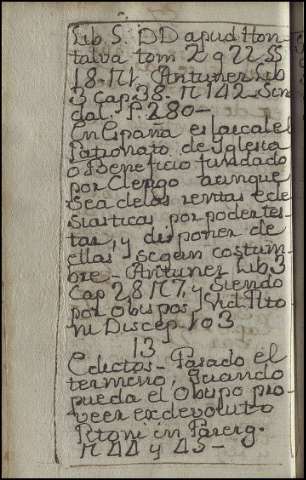 Lib S. DD apud Hon
talva tom 2 q 22 SS
18. n 1. Antunez Lib
3 Cap 38. n 142 Sen
dal. f. 280 —
En España es laical el
Patronato de Iglesia
o Beneficio fundado
por Clerigo aunque
sea de los rentas ecle
siasticas por poder tes
tar, y disponer de
ellas segun costum
bre — Antunez Lib. 3
Cap 28 n 7, y siendo
por Obispos Vid. Pito
ni Discep. 103
13
Electos — Pasado el
termino, Quando
pueda el Obispo pro
veer ex devoluto
Pitoni in Parerg.
n 44 y 45 —